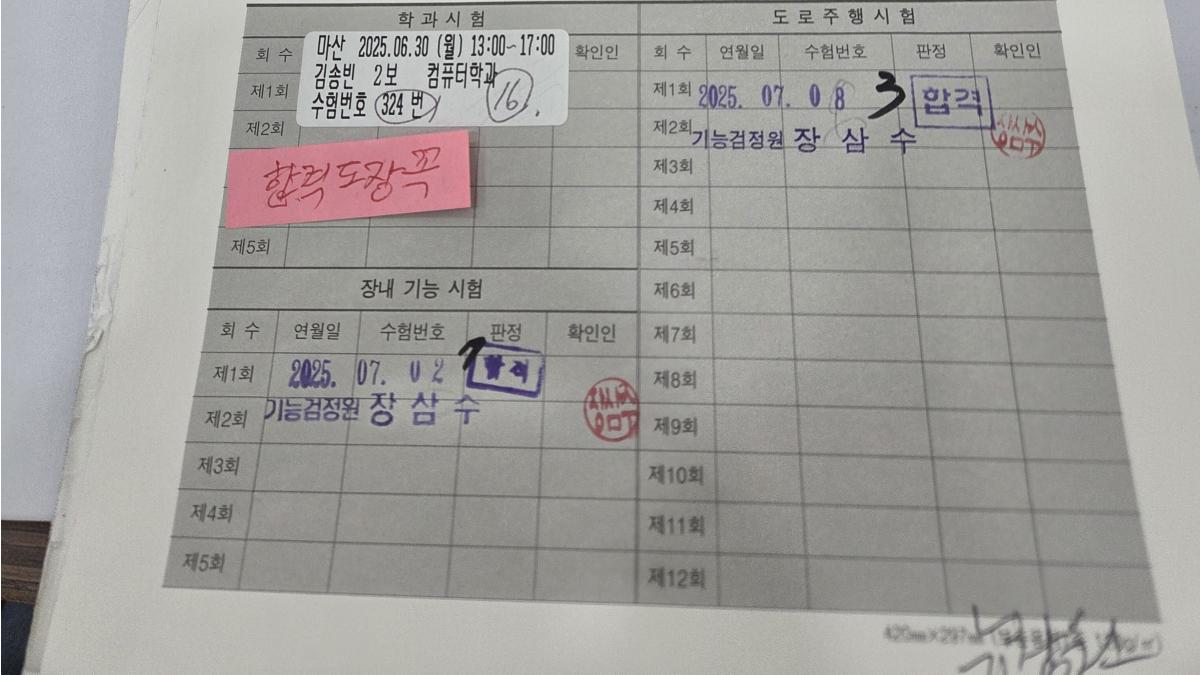 학과시험
회 수
확인인
마산 2025.06.30 (월) 13:00~17:00
김송빈 2보 컴퓨터학과
수험번호 324 번
16
제1회
제2회
합격도장꼭
제5회
장내 기능 시험
회 수 연월일 수험번호 판정 확인인
제1회 2025. 07. 02
제2회 기능검정원 장 삼 수
제3회
제4회
제5회
도로주행시험
회 수 연월일 수험번호 판정 확인인
제1회 2025. 07. 08 3 합격
제2회 기능검정원 장 삼 수
제3회
제4회
제5회
제6회
제7회
제8회
제9회
제10회
제11회
제12회
420㎜×297㎜